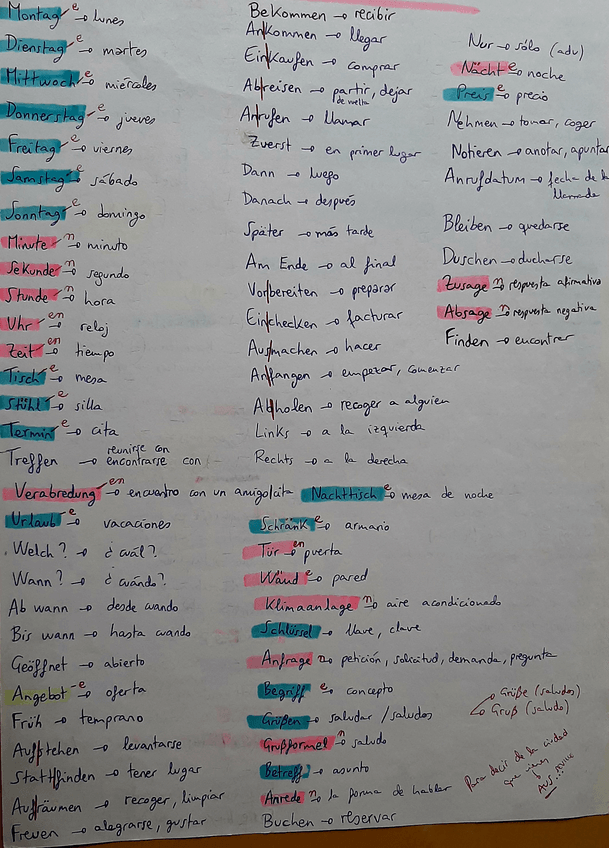 Montag e → lunes
Dienstag e → martes
Mittwoch e → miércoles
Donnerstag e → jueves
Freitag e → viernes
Samstag e → sábado
Sonntag e → domingo
Minute n → minuto
Sekunde n → segundo
Stunde n → hora
Uhr en → reloj
Zeit en → tiempo
Tisch e → mesa
Stühl e → silla
Termin e → cita
Treffen → reunirse con
encontrarse con
Verabredung en → encuentro con un amigo/cita
Urlaub e → vacaciones
Welch? → ¿cuál?
Wann? → ¿cuándo?
Ab wann → desde cuando
Bis wann → hasta cuando
Geöffnet → abierto
Angebot e → oferta
Früh → temprano
Auf|stehen → levantarse
Statt|finden → tener lugar
Auf|räumen → recoger, limpiar
Freuen → alegrarse, gustar
Bekommen → recibir
An|kommen → llegar
Ein|kaufen → comprar
Ab|reisen → partir, dejar
de vuelta
An|rufen → llamar
Zuerst → en primer lugar
Dann → luego
Danach → después
Später → más tarde
Am Ende → al final
Vor|bereiten → preparar
Ein|checken → facturar
Aus|machen → hacer
An|fangen → empezar, comenzar
Ab|holen → recoger a alguien
Links → a la izquierda
Rechts → a la derecha
Nachttisch e → mesa de noche
Schränk e → armario
Tür en → puerta
Wänd e → pared
Klimaanlage n → aire acondicionado
Schlüssel → llave, clave
Anfrage n → petición, solicitud, demanda, pregunta
Begriff e → concepto
Grüßen → saludar/saludos
Grüße (saludos)
Gruß (saludo)
Grußformel n → saludo
Betreff e → asunto
Anrede n → la forma de hablar
Buchen → reservar
Nur → sólo (adv)
Nächt e → noche
Preis e → precio
Nehmen → tomar, coger
Notieren → anotar, apuntar
Anrufdatum → fecha de la
llamada
Bleiben → quedarse
Duschen → ducharse
Zusage n → respuesta afirmativa
Absage n → respuesta negativa
Finden → encontrar
Para decir de la ciudad
que vienes
Aus...